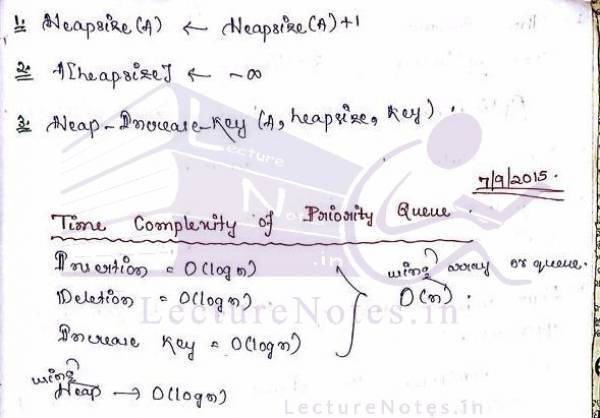 1. Heapsize(A) ← Heapsize(A)+1
2. A[heapsize] ← -∞
3. Heap-Increase-Key (A, heapsize, Key).
7/9/2015.
Time Complexity of Priority Queue.
Insertion = O(log n)
Deletion = O(log n)
Increase Key = O(log n)
using array or queue.
O(n).
using Heap → O(log n)
Lecture Notes.in
LectureNotes.in
LectureNotes.in